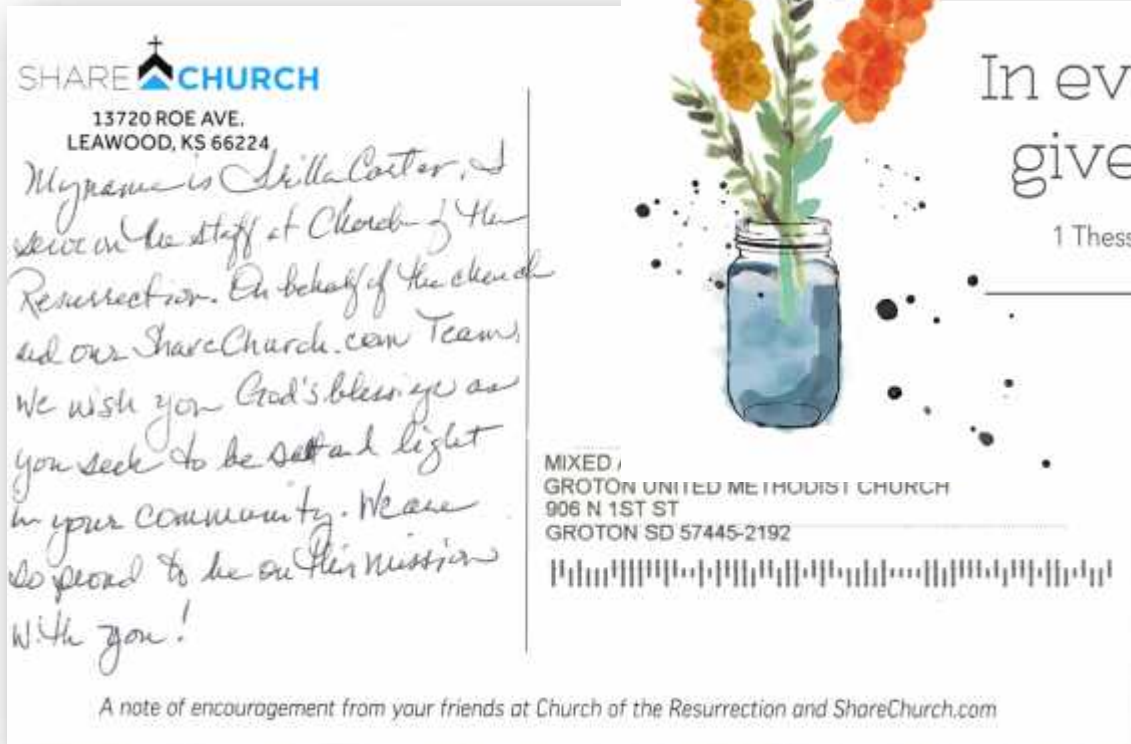 SHARE CHURCH
13720 ROE AVE.
LEAWOOD, KS 66224
My name is Carter, I
serve on the staff at Church of the
Resurrection. On behalf of the church
and our ShareChurch.com Team,
We wish you God's blessings as
you seek to be salt and light
in your community. We are
so proud to be on this mission
with you!
In ev
give
1 Thess
MIXED
GROTON UNITED METHODIST CHURCH
906 N 1ST ST
GROTON SD 57445-2192
A note of encouragement from your friends at Church of the Resurrection and ShareChurch.com